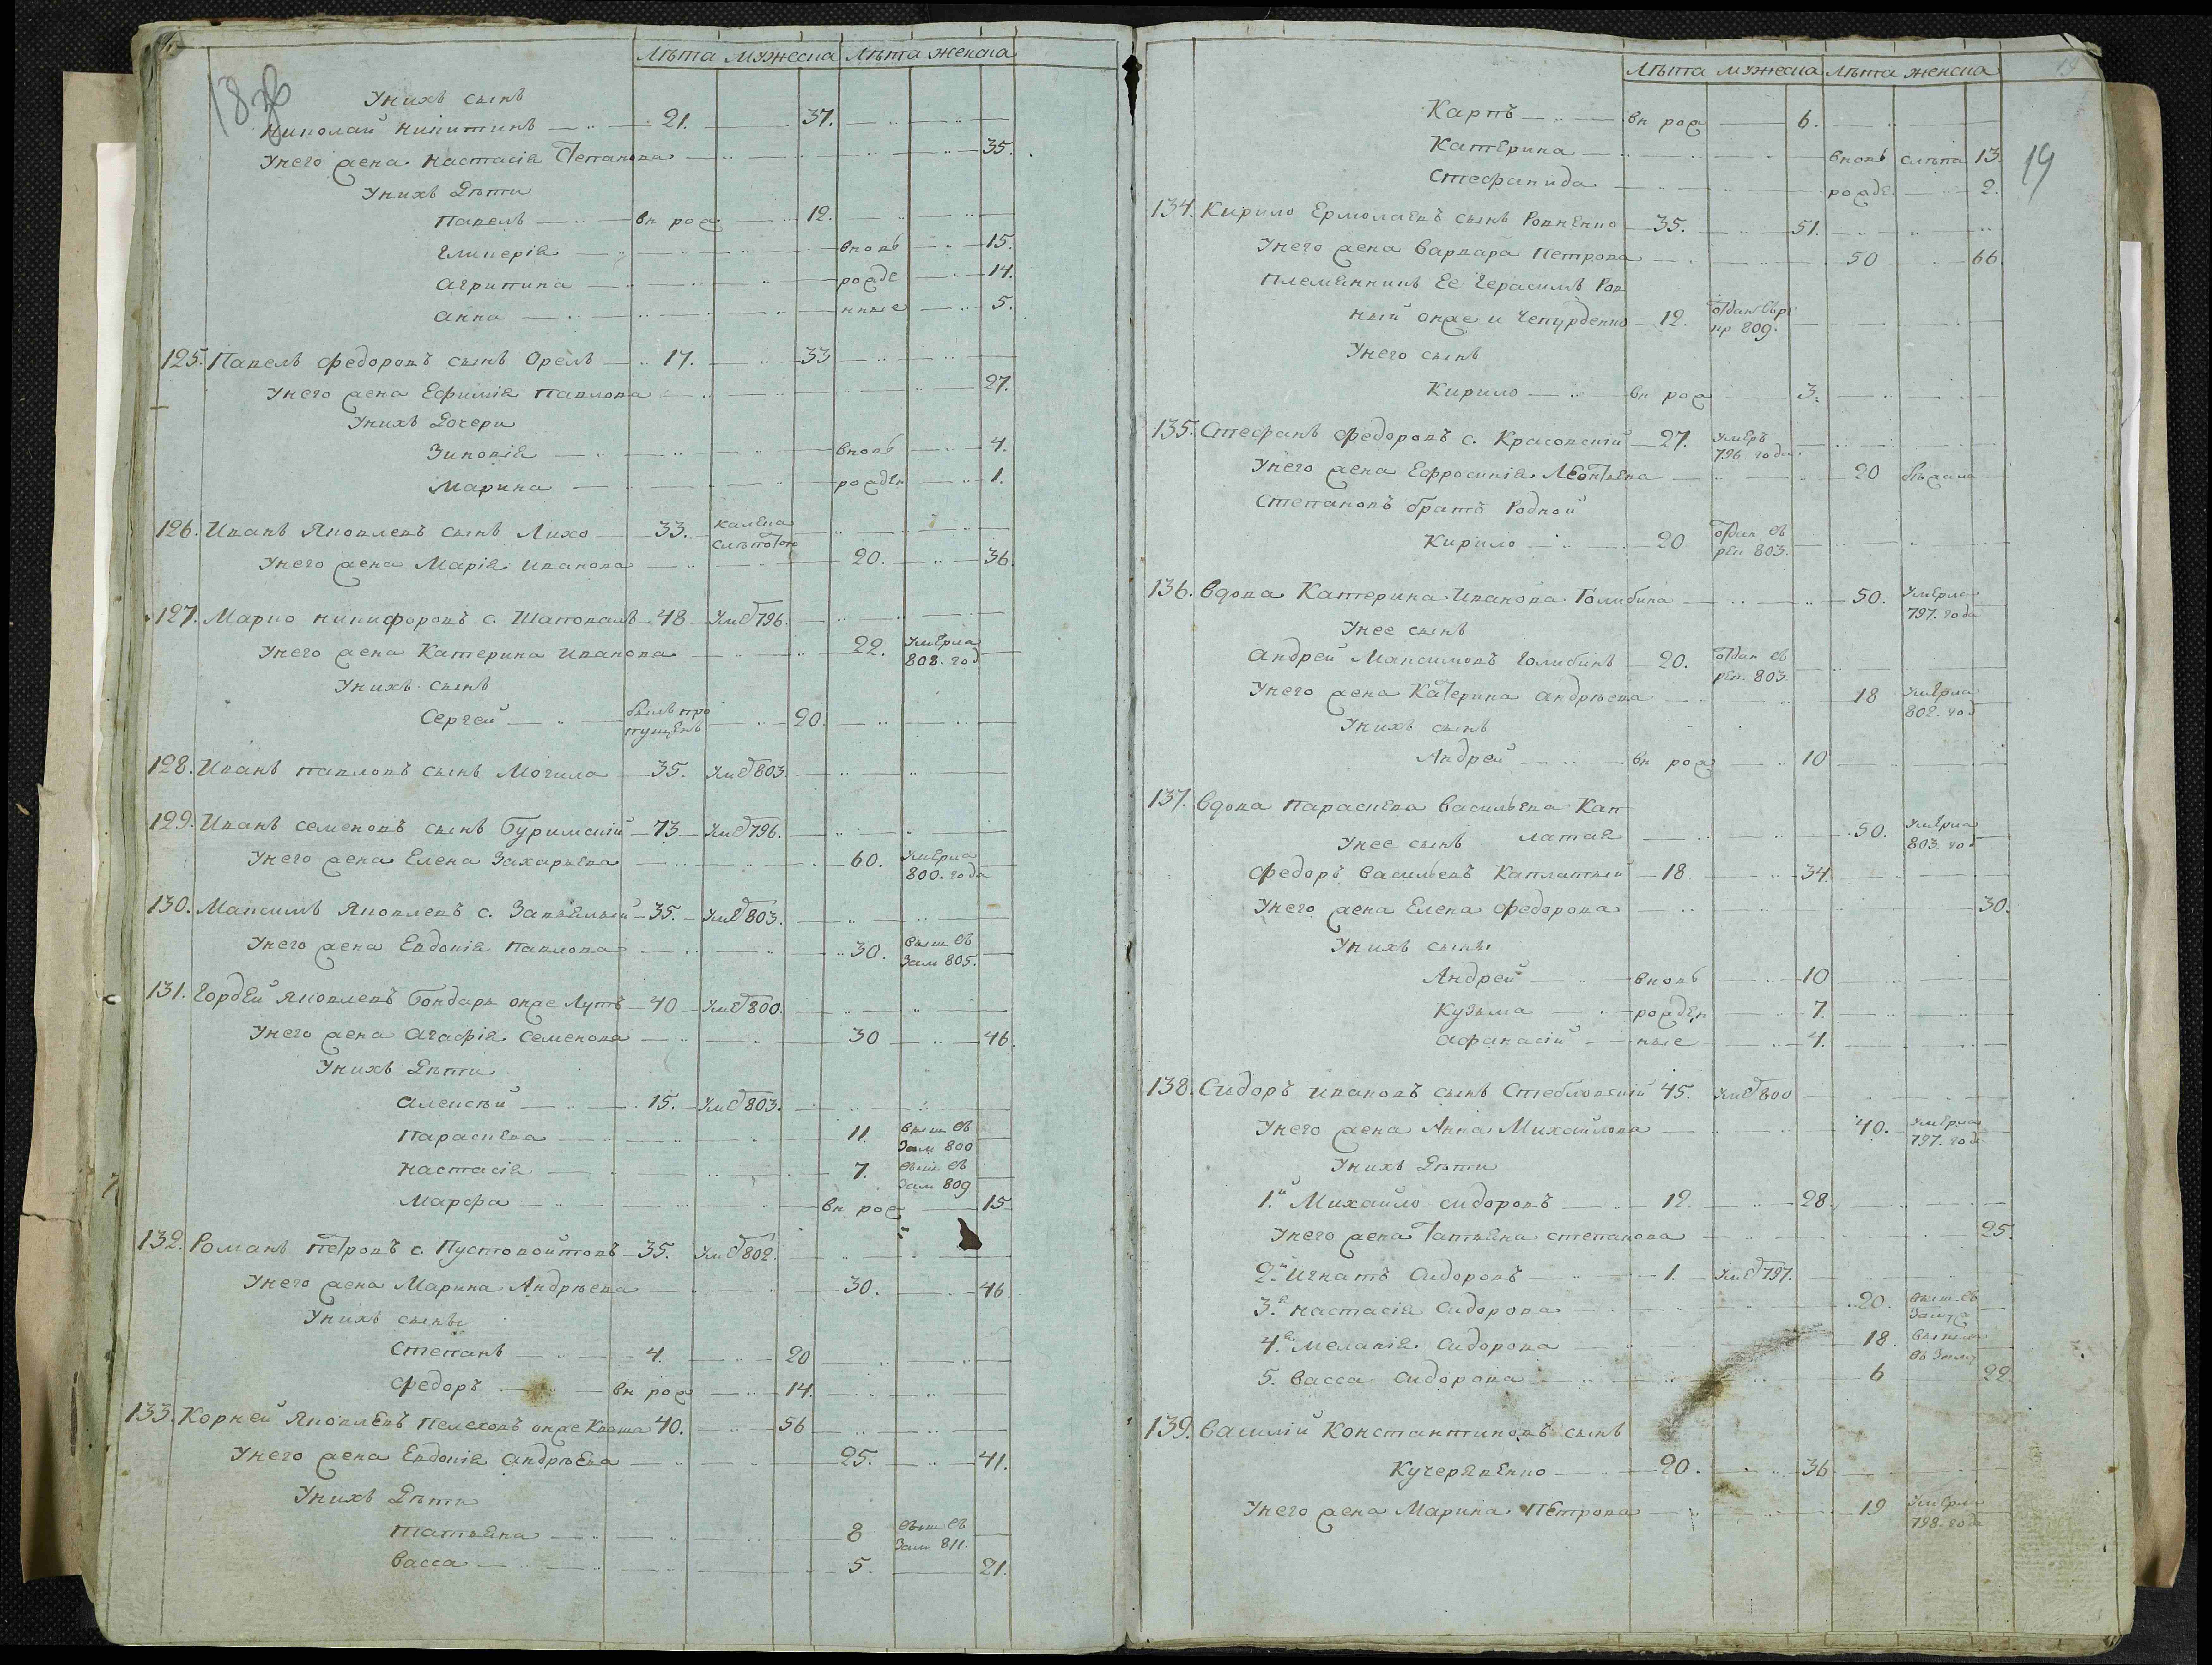 18 зв
Лѣта мужеска Лѣта женска
У нихъ сынъ
Николай Никитинъ 21. 37.
У него жена Настасія Степанова 35.
У нихъ дѣти
Павелъ вн рож 12.
Гликерія вновь 15.
Агрипина рожде 14.
Анна нные 5.
125. Павелъ Федоровъ сынъ Орелъ 17. 33
У него жена Ефимія Павлова 27.
У нихъ дочери
Зиновія вновь 4.
Марина рожден 1.
126. Иванъ Яковлевъ сынъ Лихо 33.
У него жена Марія Иванова 20. 36.
127. Марко Никифоровъ с. Шаповалъ 48 Уме 796.
У него жена Катерина Иванова 22. Умерла 808. год
У нихъ сынъ
Сергей былъ пропущенъ 20.
128. Иванъ Павловъ сынъ Могила 35. Уме 803.
129. Иванъ Семеновъ сынъ Буримскій 73 Уме 796.
У него жена Елена Захарьева 60. Умерла 800. года
130. Максимъ Яковлевъ с. 35. Уме 803.
У него жена Евдокія Павлова 30. Выш въ Зам 805.
131. Гордей Яковлевъ Бондарь онже Лутъ 40 Уме 800.
У него жена Агафія Семенова 30 46.
У нихъ дѣти
Алексѣй 15. Уме 803.
Параскева 11. Выш въ Зам 800
Настасія 7. Выш въ Зам 809
Марфа вн рож 15
132. Романъ Петровъ с. Пустовойтовъ 35. Уме 802.
У него жена Марина Андрѣева 30. 46.
У нихъ сынъ
Степанъ 4. 20
Федоръ вн рож 14.
133. Корней Яковлевъ Пелеховъ онже Кваша 40. 56
У него жена Евдокія Андрѣева 25. 41.
У нихъ дѣти
Татьяна 8 Выш въ Зам 811.
Васса 5. 21.
Лѣта мужеска Лѣта женска
19
19
Карпъ вн рож 6.
Катерина вновь слѣпа 13.
Стефанида рожде 2.
134. Кирило Ермолаевъ сынъ Ровненко 35. 51.
У него жена Варвара Петрова 50 66
Племянникъ ее Герасимъ Ров
ный онже и Чепурденко 12. отдан въ ре кр 809.
У него сынъ
Кирило вн рож 3.
135. Стефанъ Федоровъ с. Красовскій 27. Умеръ 796. года.
У него жена Ефросинія Леонтьева 20 бѣжала
Степановъ братъ родной
Кирило 20 отдан въ рек 803.
136. Вдова Катерина Иванова Голибина 50. Умерла 797. года
У нее сынъ
Андрей Максимовъ Голибинъ 20. отдан въ рек. 803
У него жена Катерина Андрѣева 18 Умерла 802. год
У нихъ сынъ
Андрей вн рож 10
137. Вдова Параскева Васильева Кап
латая 50. Умерла 803. год
У нее сынъ
Федоръ Васильевъ Каплатый 18 34.
У него жена Елена Федорова 30.
У нихъ сынъ
Андрей вновь 10
Кузьма рожден 7.
Афанасій ные 4.
138. Сидоръ Ивановъ сынъ Стебловскій 45. Уме 800
У него жена Анна Михайлова 40. Умерла 797. год
У нихъ дѣти
1.й Михайло Сидоровъ 12. 28.
У него жена Татьяна Степанова 25.
2.й Игнатъ Сидоровъ 1. Уме 797.
3.я Настасія Сидорова 20. Выш въ Замуж
4.я Меланія Сидорова 18. Вышла въ Замуж
5. Васса Сидорова 6 22.
139. Василій Константиновъ сынъ
Кучерявенко 20. 36
У него жена Марина Петрова 19 Умерла 798. года